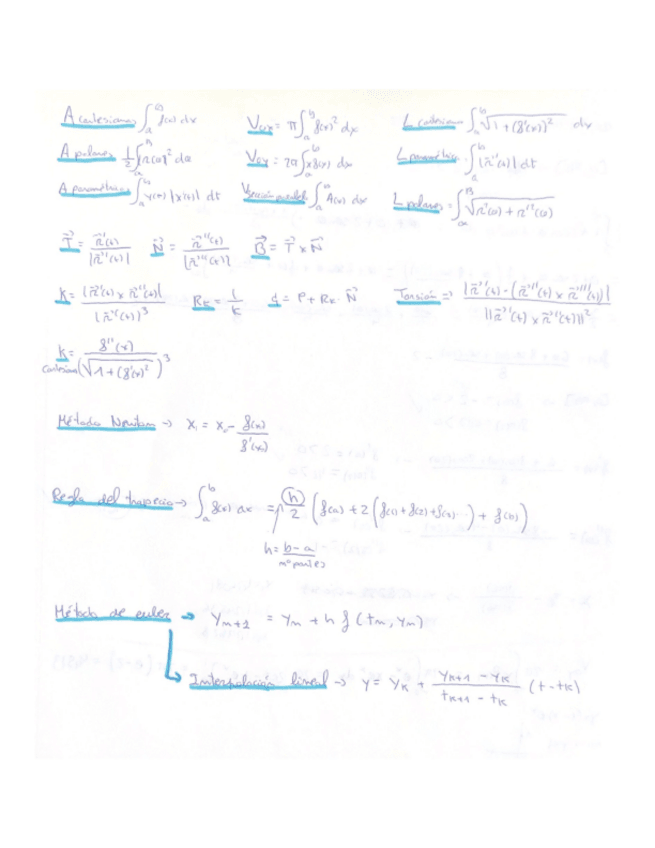 A cartesianas ∫_a^b f(x) dx    V_OX = π ∫_a^b f(x)² dx    L cartesianas ∫_a^b √(1 + (f'(x))²) dx
A polares ½ ∫_α^β r(α)² dα    V_OY = 2π ∫_a^b x f(x) dx    L paramétrica ∫_a^b |r⃗'(t)| dt
A paramétricas ∫_a^b y(t) |x'(t)| dt    V sección paralel ∫_a^b A(x) dx    L polares = ∫_α^β √(r²(α) + r'²(α))
T⃗ = r⃗'(t) / |r⃗'(t)|    N⃗ = r⃗''(t) / |r⃗''(t)|    B⃗ = T⃗ x N⃗
K = |r⃗'(t) x r⃗''(t)| / |r⃗'(t)|³    R_K = 1/K    = P + R_K · N⃗    Torsión → |r⃗'(t) · (r⃗''(t) x r⃗'''(t))| / ||r⃗'(t) x r⃗''(t)||²
K cartesianas = f''(x) / (√(1 + (f'(x))²))³
Método Newton → X₁ = X₀ - f(x₀) / f'(x₀)
Regla del trapecio → ∫_a^b f(x) dx = h/2 (f(a) + 2 (f(1) + f(2) + f(3)) + f(b))
h = b - a / nº partes
Método de euler → y_{n+1} = y_n + h f(t_n, y_n)
Interpolación lineal → y = y_K + (y_{K+1} - y_K) / (t_{K+1} - t_K) (t - t_K)